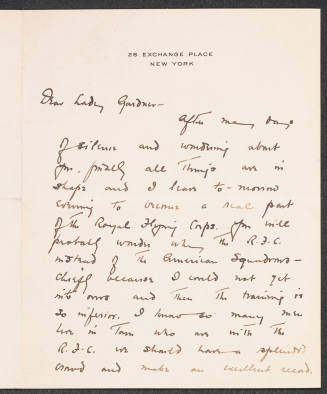 28 EXCHANGE PLACE
NEW YORK
Dear Lady Gardner—
After many days
of silence and wondering about
you, finally all things are in
shape and I leave to-morrow
evening to become a real part
of the Royal Flying Corps. You will
probably wonder why the R.F.C.
instead of the American Squadrons—
chiefly because I could not get
into ours and then the training is
so inferior. I know so many men
here in Town who are with the
R.F.C. we should have a splendid
crowd and make an excellent record.